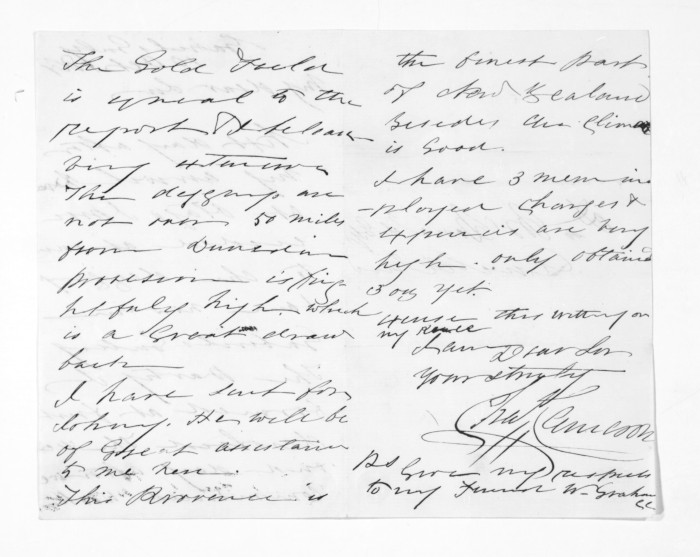 The Gold Field
is equeal to the
report & I beleave
very extensive
The diggings are
not over 50 miles
from Dunedin
provision is frig
htfuly high. which
is a Great draw
back
I have sent for
Johny. He will be
of Great assistance
to me here.
This Province is
the finest part
of New Zealand
Besedes the Climate
is Good.
I have 3 men im
-ployed Charges &
expencies are very
high. only obtained
3 oz yet.
excuse this writting on
my knee
I am Dear Sir
Your struly
Chas Cameron
PS Give my respects
to my Friend W Graham